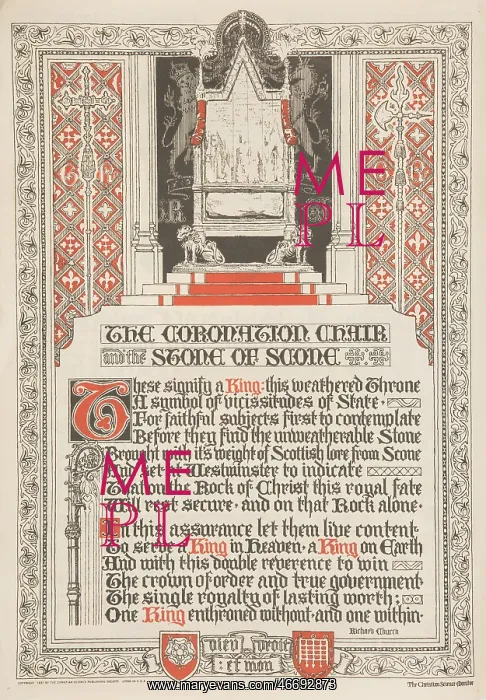 THE CORONATION CHAIR
and the STONE OF SCONE
These signify a King: this weathered Throne
A symbol of vicissitudes of State.
For faithful subjects first to contemplate
Before they find the unweatherable Stone
Brought with its weight of Scottish lore from Scone
And set in Westminster to indicate
That on the Rock of Christ this royal fate
Will rest secure. and on that Rock alone.
In this assurance let them live content.
To serve a King in Heaven. a King on Earth
And with this double reverence to win
The crown of order and true government
The single royalty of lasting worth:
One King enthroned without. and one within.
Richard Church
dieu et mon droit
COPYRIGHT 1937 BY THE CHRISTIAN SCIENCE PUBLISHING SOCIETY
The Christian Science Monitor
ME
PL
ME
PL
www.maryevans.com/46692873